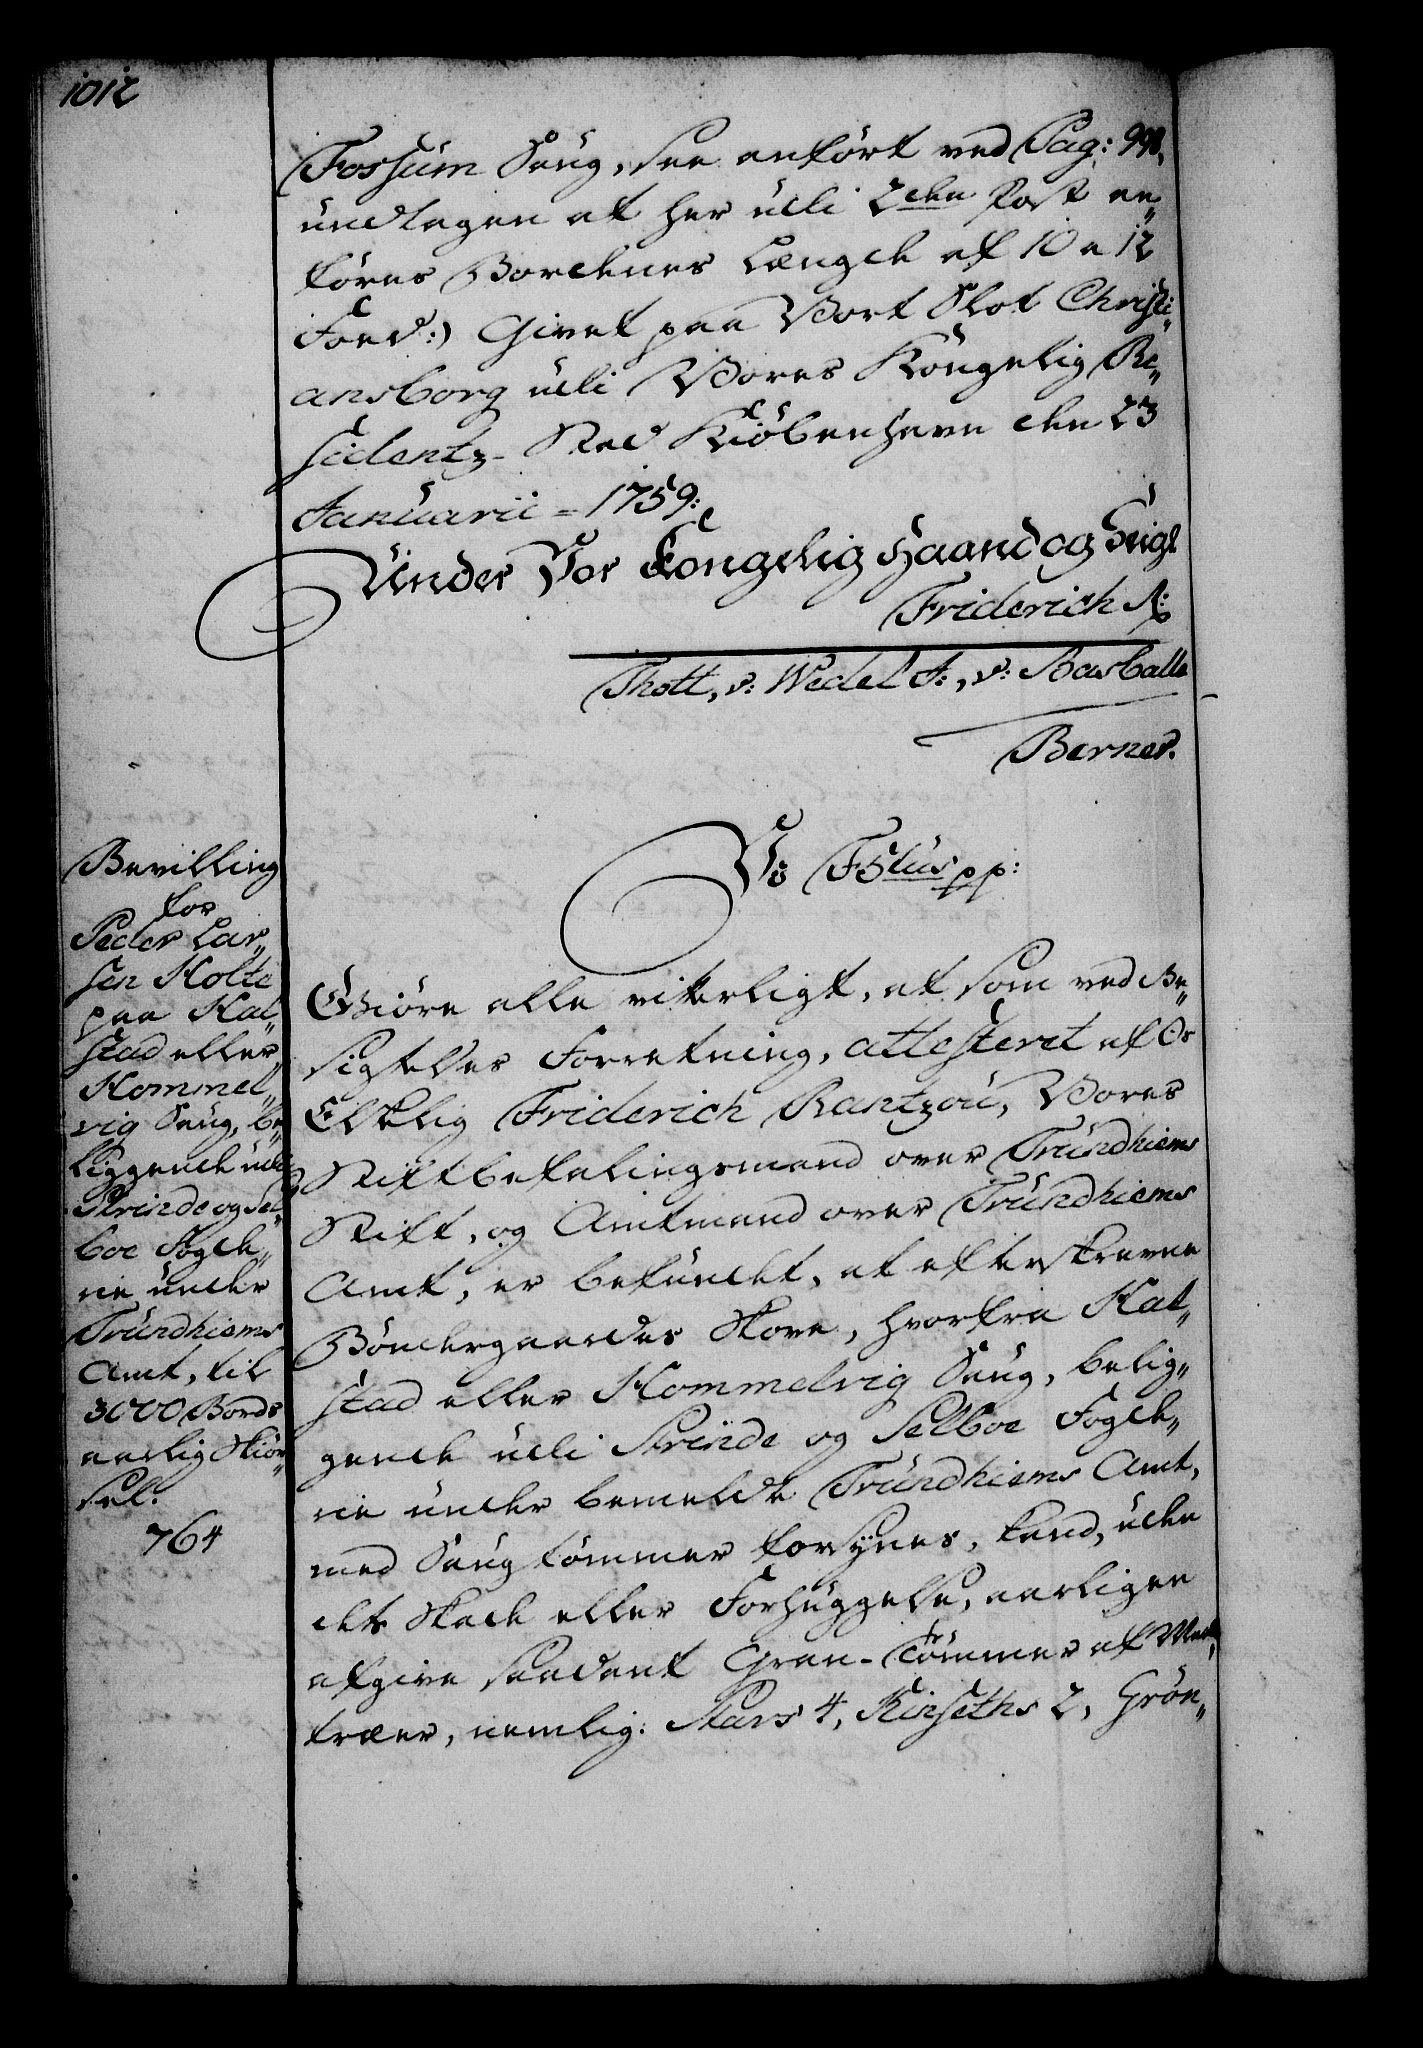 1012
Fossum Saug, see anført ved Pag: 998,
undtagen at her udi 2den Post an„
føres Bordenes Længde af 10 a 12
Foed:) Givet paa Vort Slot Christi„
ansborg udi Vores Kongelig Re„
sidentz-Stad Kiøbenhavn den 23
Januarii - 1759:
Under Vor Kongelig Haand og Seigl
Friderich R:
Thott, v: Wedel F:, v: Barballe
Berner.
Bevilling
for
Peder Lar„
sen Holte
paa Hal„
stad eller
Hommel„
vig Saug, be„
liggende udi
Strinde og Sel„
boe Fogde„
rie under
Trundhiems
Amt, til
3000 Bords
aarlig Skiør„
sel.
764
Vi F5tus pp:
Giøre alle vitterligt, at som ved Be„
sigtelses Forretning, attesteret af Os
Elskelig Friderich Rantzou, Vores
Stiftbefalingsmand over Trundhiems
Stift, og Amtmand over Trundhiems
Amt, er befundet, at efterskrevne
Bøndergaardes Skove, hvorfra Hal„
stad eller Hommelvig Saug, belig„
gende udi Strinde og Selboe Fogde„
rie under bemeldte Trundhiems Amt,
med Saugtømmer forsynes, kand, uden
dets Skade eller Forhuggelse, aarligen
afgive saadant Gran-Tømmer af
træer, nemlig: Stars 4, Kinseths 2, Grøn„